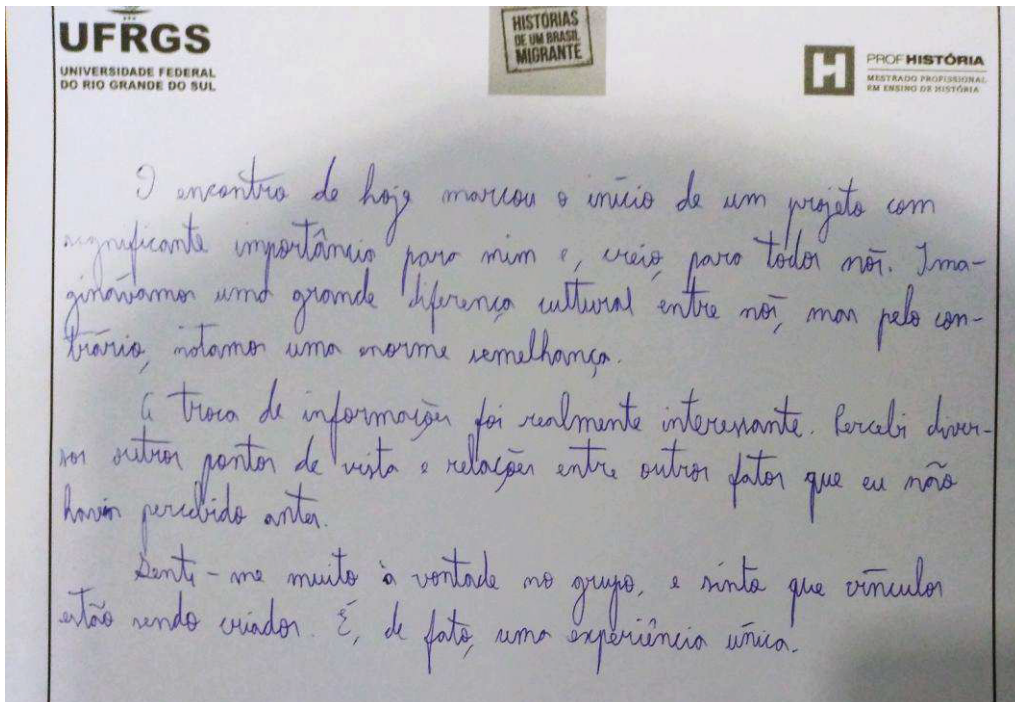 UFRGS
UNIVERSIDADE FEDERAL
DO RIO GRANDE DO SUL
HISTÓRIAS
DE UM BRASIL
MIGRANTE
H
PROFHISTÓRIA
MESTRADO PROFISSIONAL
EM ENSINO DE HISTÓRIA
O encontro de hoje marcou o início de um projeto com
significante importância para mim e, creio, para todos nós. Ima-
ginávamos uma grande diferença cultural entre nós, mas pelo con-
trário, notamos uma enorme semelhança.
A troca de informações foi realmente interessante. Percebi diver-
sos outros pontos de vista e relações entre outros fatos que eu não
havia percebido antes.
Senti-me muito à vontade no grupo, e sinto que vínculos
estão sendo criados. É, de fato, uma experiência única.